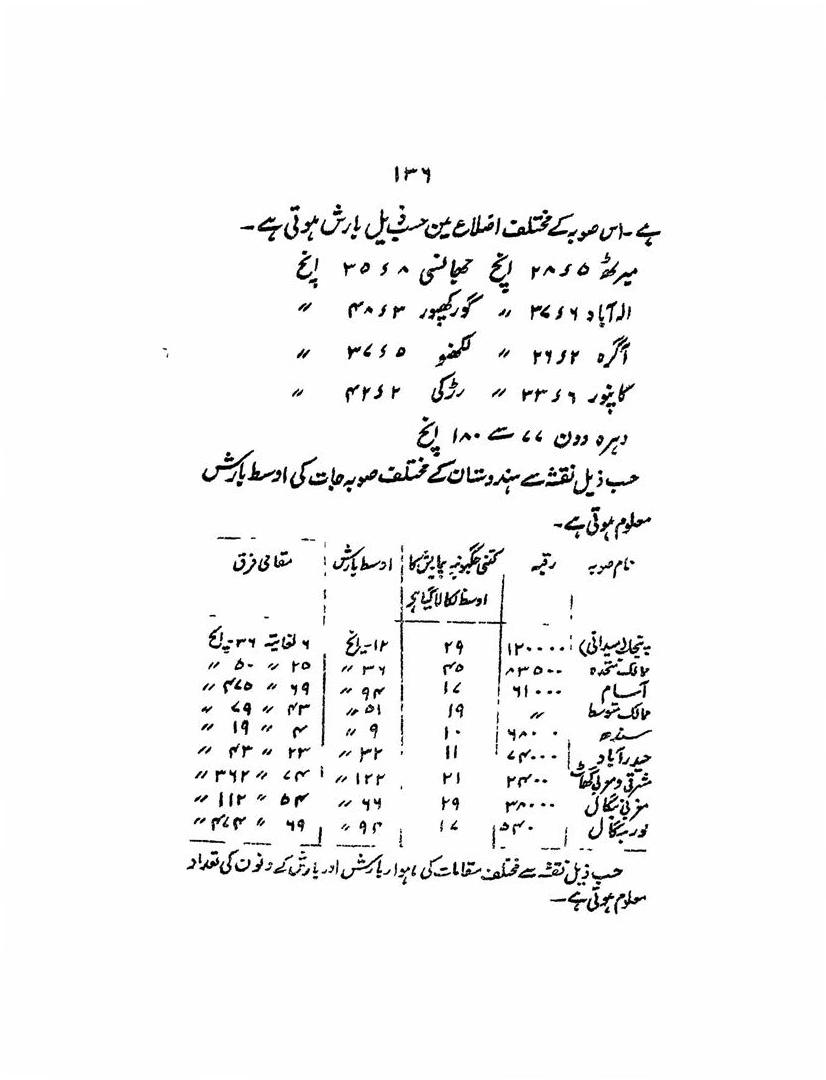 ۱۳۶
ہے۔ اس صوبہ کے مختلف اضلاع مین حسب ذیل بارش ہوتی ہے۔
میرٹھ ۲۸ء۵ اِنچ جھانسی ۳۵ء۸ اِنچ
الہ آباد ۳۷ء۶ 〃 گورکھپور ۴۸ء۳ 〃
آگرہ ۲۶ء۲ 〃 لکھنو ۳۷ء۵ 〃
کانپور ۳۳ء۶ 〃 رڑکی ۴۲ء۲ 〃
دہرہ دون ۷۷ سے ۱۸۰ اِنچ
حسب ذیل نقشہ سے ہندوستان کے مختلف صوبہ جات کی اوسط بارش
معلوم ہوتی ہے۔
نام صوبہ رقبہ کتنی جگہونپر پیمایش کا اوسط بارش مقامی فرق
اوسط نکالا گیا ہے
پنجاب (میدانی) ۱۲۰۰۰۰ ۲۹ ۱۲۔اِنچ ۶ لغایتہ ۳۶۔اِنچ
ممالک متحدہ ۸۳۵۰۰ ۴۵ ۳۶ 〃 ۲۵ 〃 ۵۰ 〃
آسام ۶۱۰۰۰ ۱۷ ۹۴ 〃 ۶۹ 〃 ۴۷۵ 〃
ممالک متوسط 〃 ۱۹ ۵۱ 〃 ۴۳ 〃 ۷۹ 〃
سندھ ۶۸۰۰۰ ۱۰ ۹ 〃 ۴ 〃 ۱۹ 〃
حیدرآباد ۷۴۰۰۰ ۱۱ ۳۲ 〃 ۲۳ 〃 ۴۳ 〃
مشرقی و مغربی گھاٹ ۲۴۰۰ ۲۱ ۱۲۲ 〃 ۷۴ 〃 ۳۶۲ 〃
مغربی بنگال ۳۸۰۰۰ ۲۹ ۶۶ 〃 ۵۴ 〃 ۱۱۲ 〃
بنگال ۵۴۰ ۱۷ ۹۴ 〃 ۶۹ 〃 ۴۷۴ 〃
حسب ذیل نقشہ سے مختلف مقامات کی ماہوار بارش اور بارش کے دنون کی تعداد
معلوم ہوتی ہے۔